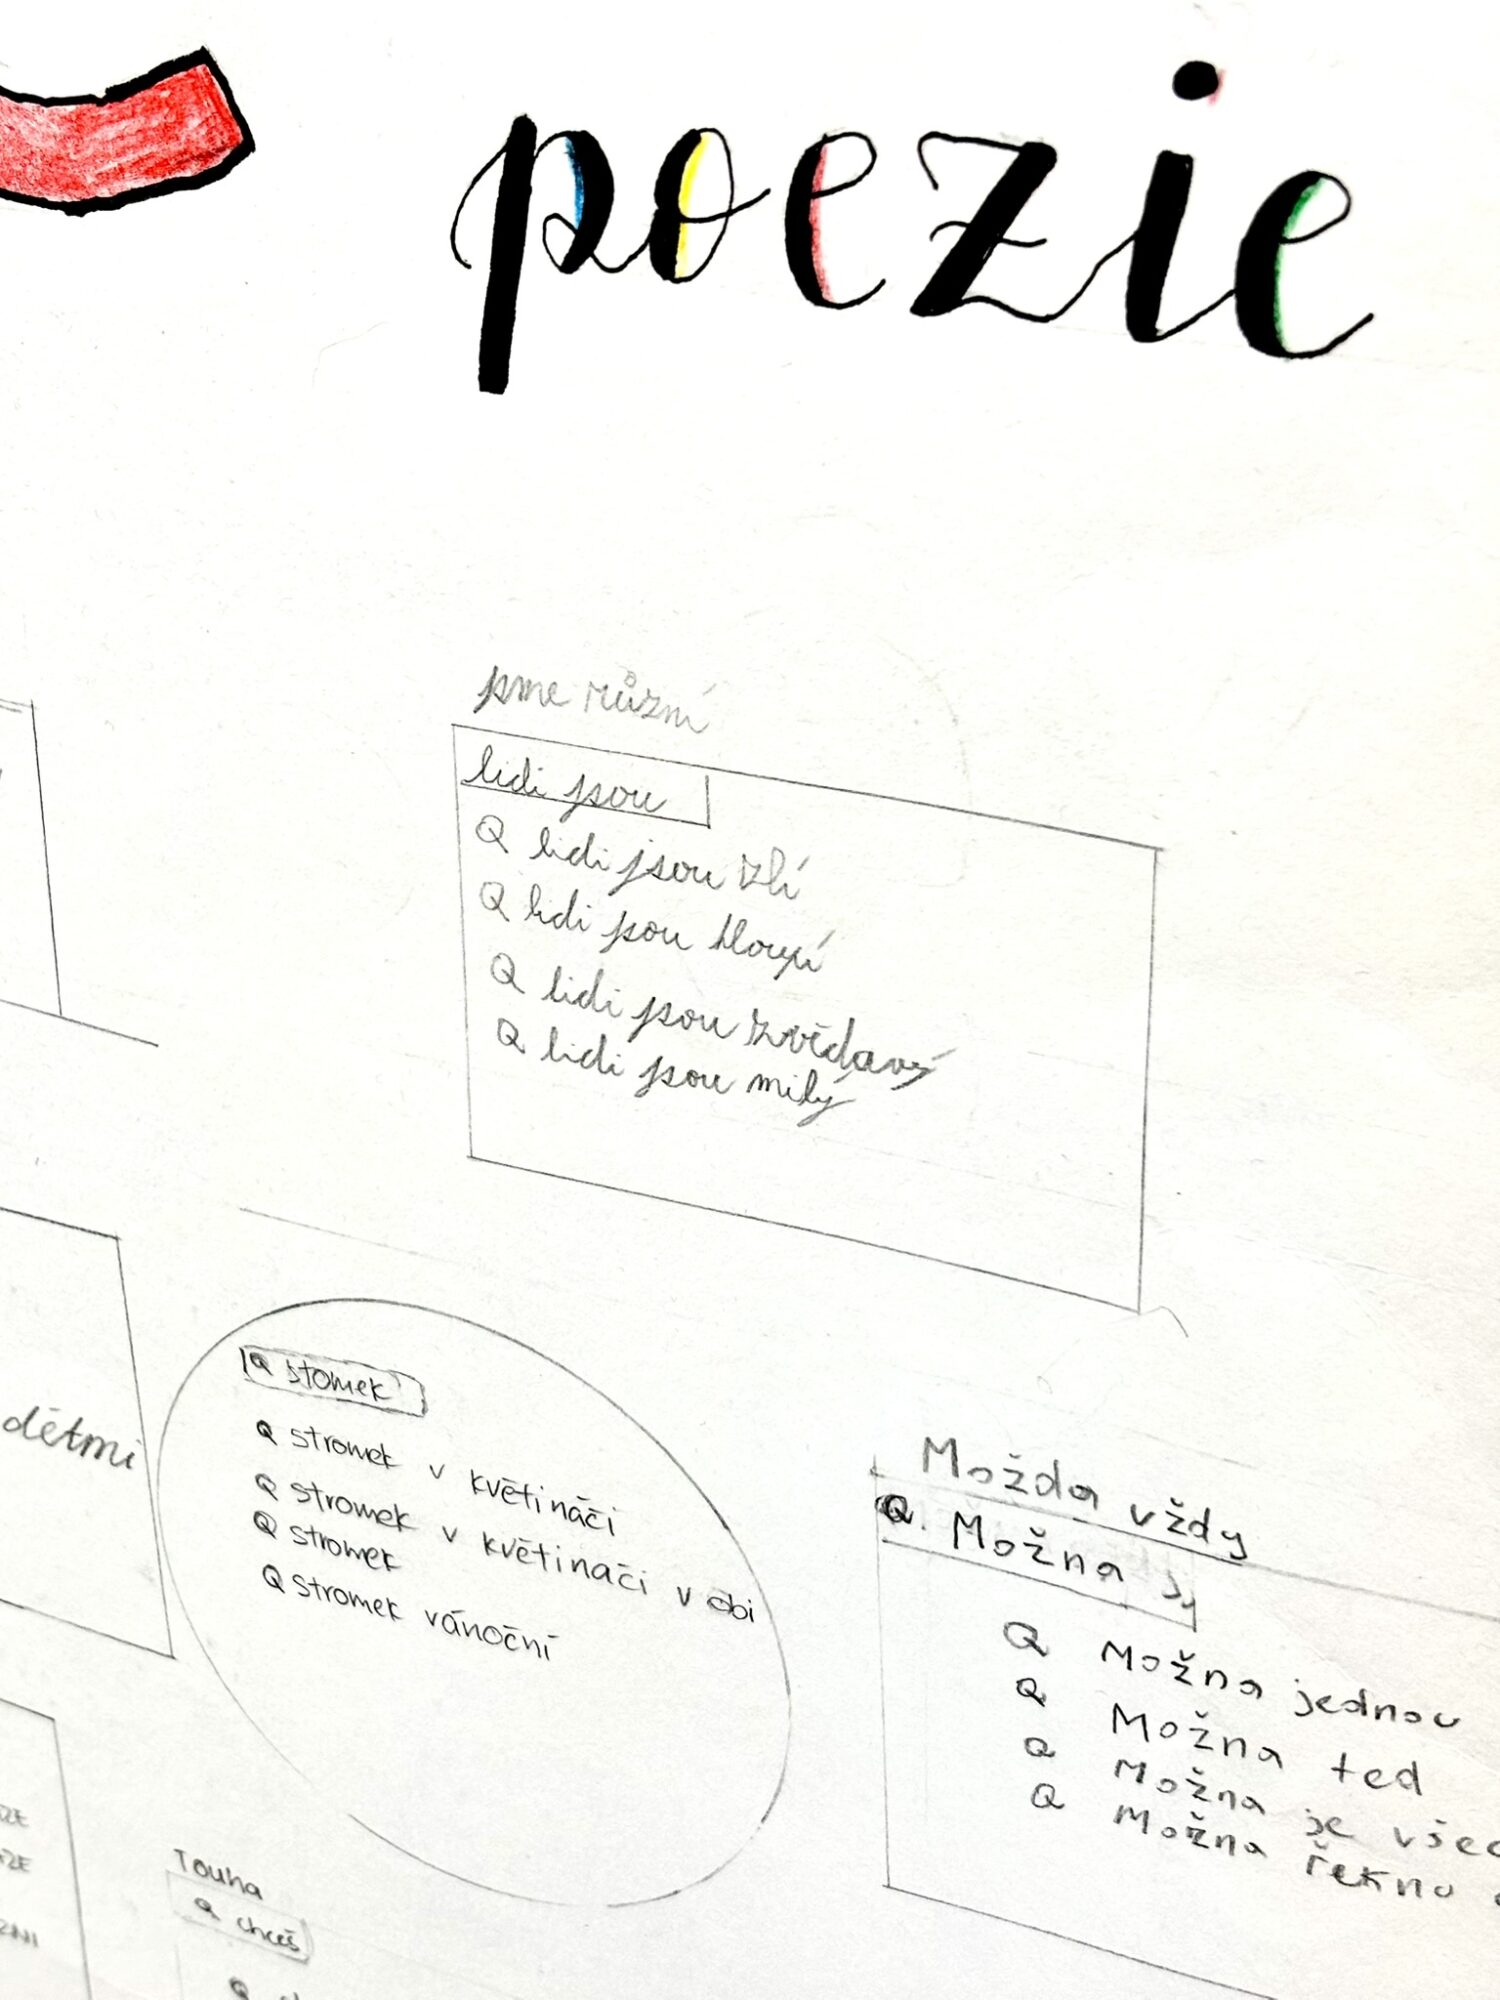 poezie
jsme různí
lidi jsou
Q lidi jsou zlí
Q lidi jsou hloupí
Q lidi jsou zvědavý
Q lidi jsou milý
dětmi
Q stomek
Q stromek v květináči
Q stromek v květináči v obi
Q stromek
Q stromek vánoční
Možda vždy
Q. Možna
Q Možna jednou
Q Možna ted
Q Možna je všec
Q Možna řekno
Touha
Q chceš
Q